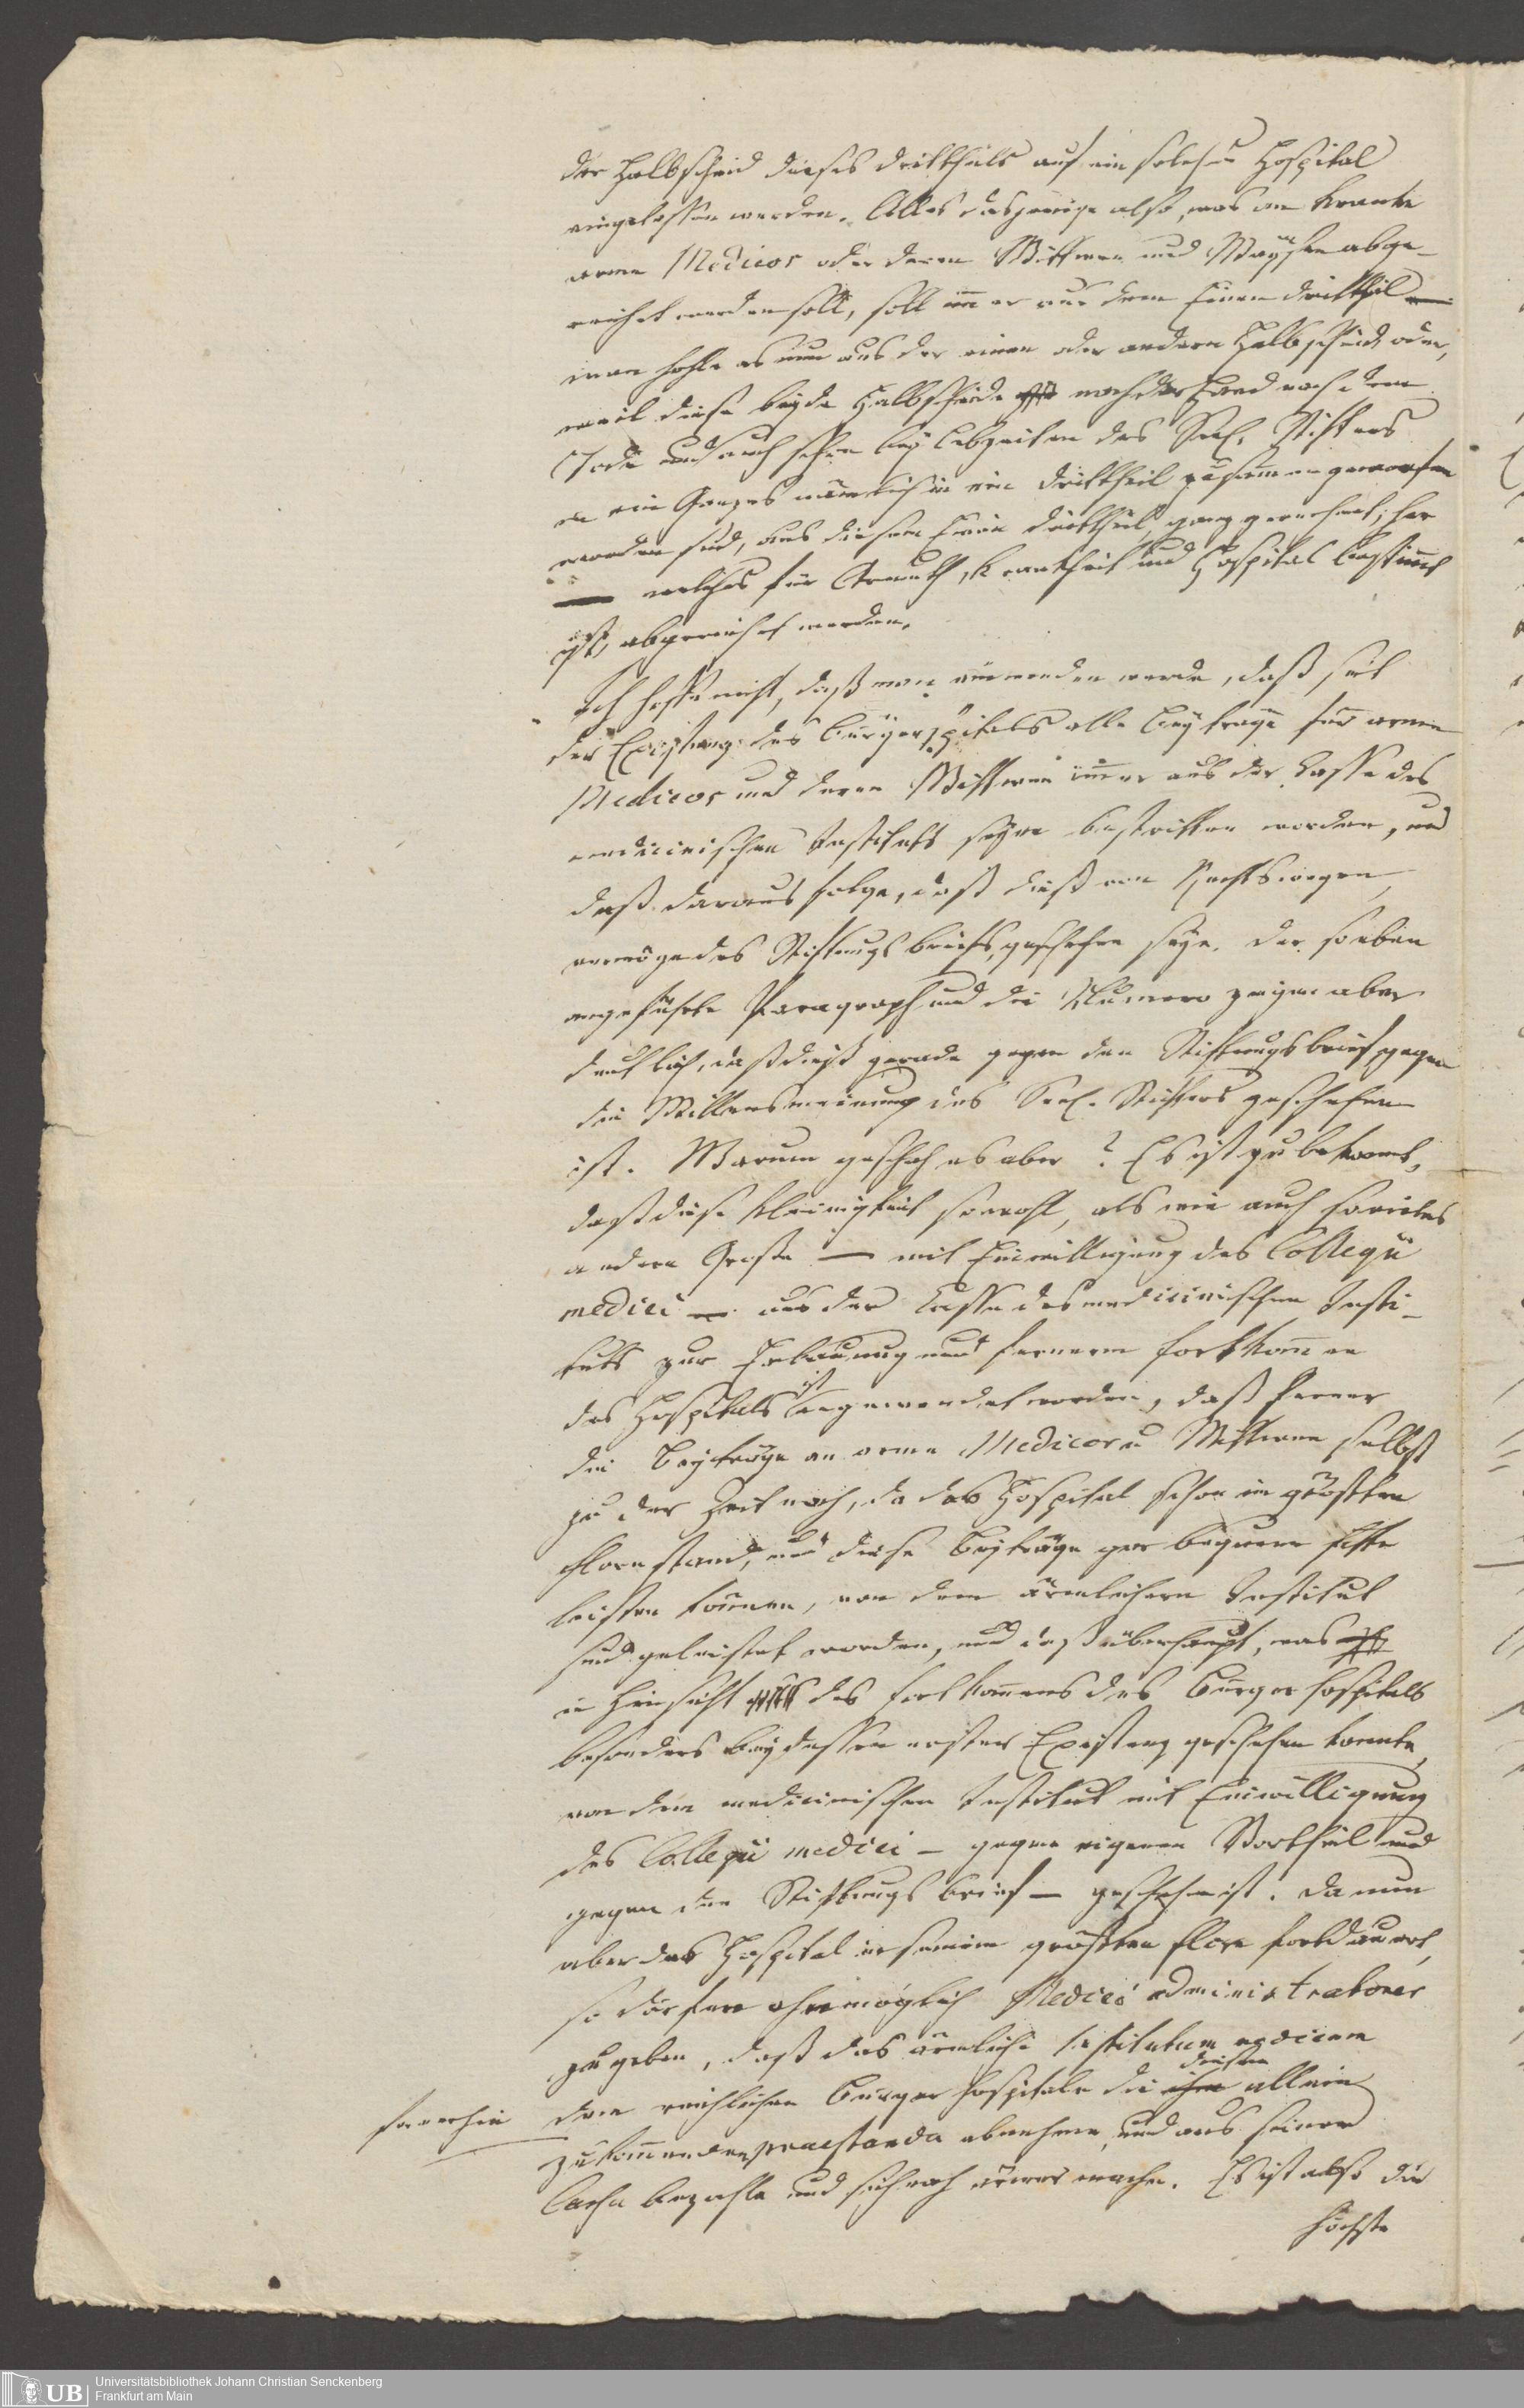 der Halbscheid dieses Dritttheils auf ein solches Hospital
eingelassen werden. Alles dasjenige also, was an kranke
arme Medicos oder deren Wittwen und Waysen abge-
reicht werden soll, soll im̄er aus dem Einen Dritttheil —
man hohle es nun aus der einen oder andern Halbscheid oder,
weil diese beyde Halbscheide nach der Hand nach dem
Tode und auch schon bey Lebzeiten des Seel. Stifters
in ein Ganzes nämlich in ein Dritttheil zusam̄en geworfen
worden sind, aus diesem Einen Dritttheil, ganz gerechnet, her
— welches für Armuth, Krankheit und Hospital bestim̄t
ist, abgereicht werden.
Ich hoffe nicht, daß man einwenden werde, daß seit
der Existenz des Bürgerspitals alle Beyträge für arme
Medicos und deren Wittwen im̄er aus der Casse des
medicinischen Instituts seyen bestritten worden, und
daß daraus folge, daß dieß von Rechtswegen,
vermöge des Stiftungsbriefs, geschehen seye. Der soeben
angeführte Paragraph und die Numero zeigen aber
deutlich, daß dieß gerade gegen den Stiftungsbrief gegen
die Willensmeinung des Seel. Stifters geschehen
ist. Warum geschah es aber? Es ist zu bekannt,
daß diese Kleinigkeit sowohl, als wie auch so vieles
andere Große — mit Einwilligung des Collegii
medici — aus der Casse des medicinischen Insti-
tuts zur Erbauung und fernerm Fortkom̄en
des Hospitals ist angewendet worden, daß ferner
die Beyträge an arme Medicos u Wittwen selbst
zu der Zeit noch, da das Hospital schon im größten
Flore stand, und diese Beyträge gar bequem hätte
leisten können, von dem ärmlichern Institut
sind geleistet worden, und daß überhaupt, was
in Hinsicht des Fortkom̄ens des Bürgerhospitals
besonders bey dessen erster Existenz geschehen konnte,
von dem medicinischen Institut mit Einwilligung
des Collegii medici — gegen eigenen Vortheil und
gegen den Stiftungsbrief — geschehen ist. Da nun
aber das Hospital in seinem größten Flore fortdauert,
so dörfen ohnmöglich Medici administratores
zugeben, daß das ärmliche Institutum medicum
fernerhin dem reichlichen Bürgerhospitale die diesem allein
zukom̄enden praestanda abnehme, und aus seiner
Cassa bezahle und sich noch ärmer mache. Es ist also die
höchste
UB Universitätsbibliothek Johann Christian Senckenberg
Frankfurt am Main